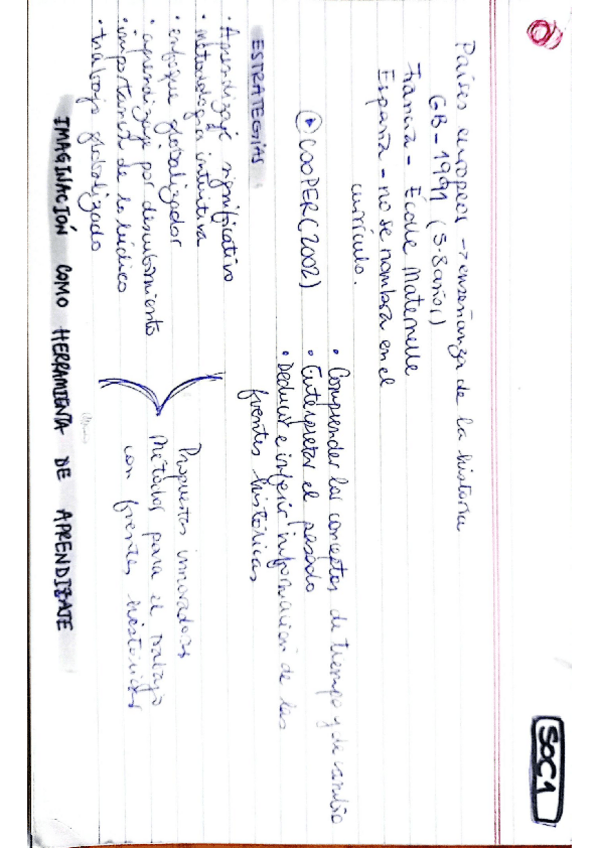 SOC1
Países europeos → enseñanza de la historia
GB - 1991 (5-8 años)
Francia - École Maternelle
España - no se nombra en el
currículo.
COOPER (2002)
• Comprender los conceptos de tiempo y de cambio
• Interpretar el pasado
• Deducir e inferir información de las
fuentes históricas
ESTRATEGIAS
• Aprendizaje significativo
• metodología intuitiva
• enfoque globalizador
• aprendizaje por descubrimiento
• importancia de lo lúdico
• trabajo globalizado
Propuestas innovadoras
Métodos para el trabajo
con fuentes históricas
IMAGINACIÓN COMO HERRAMIENTA DE APRENDIZAJE